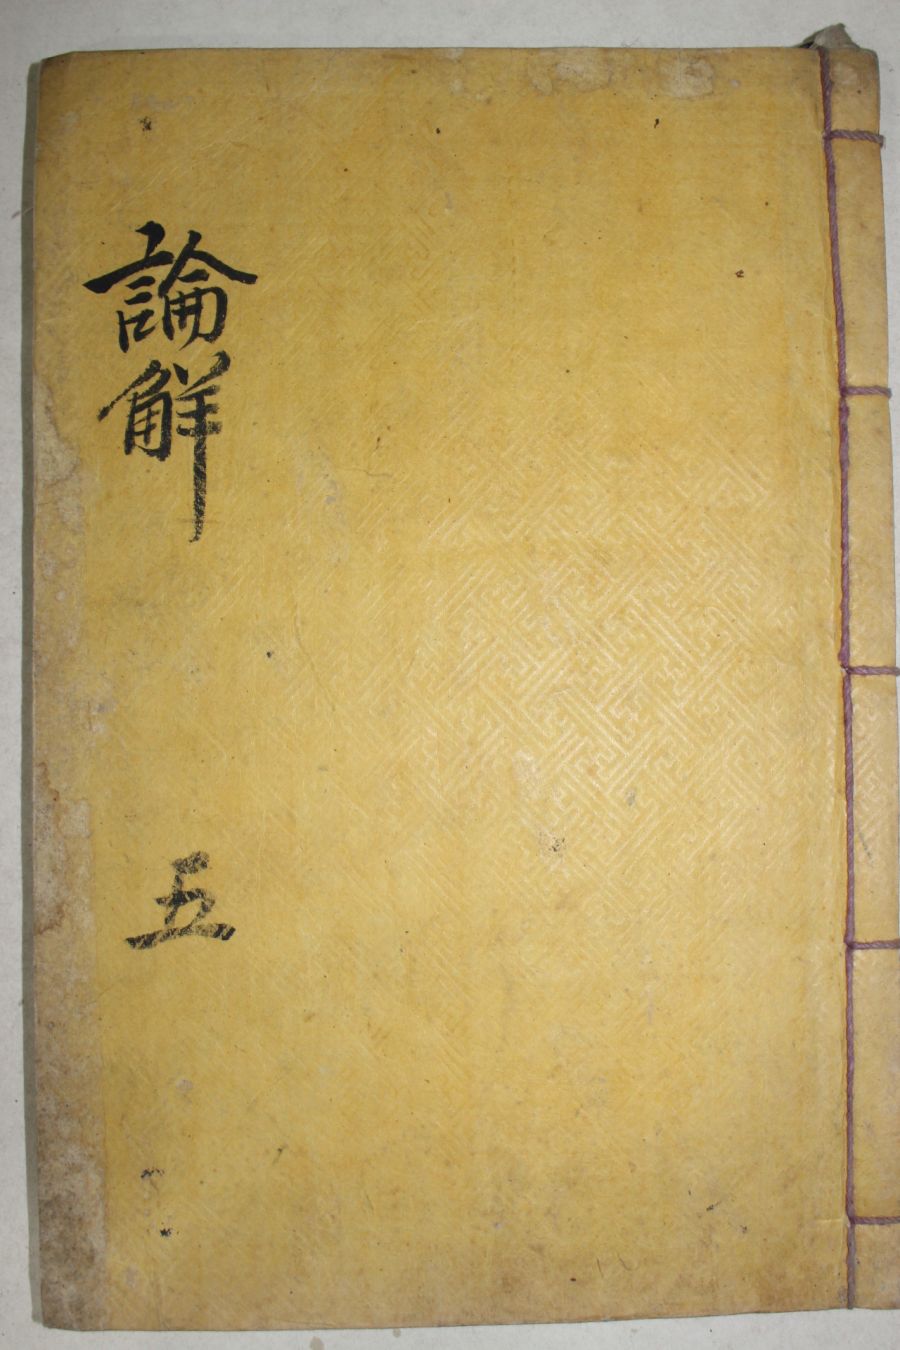 論解
五